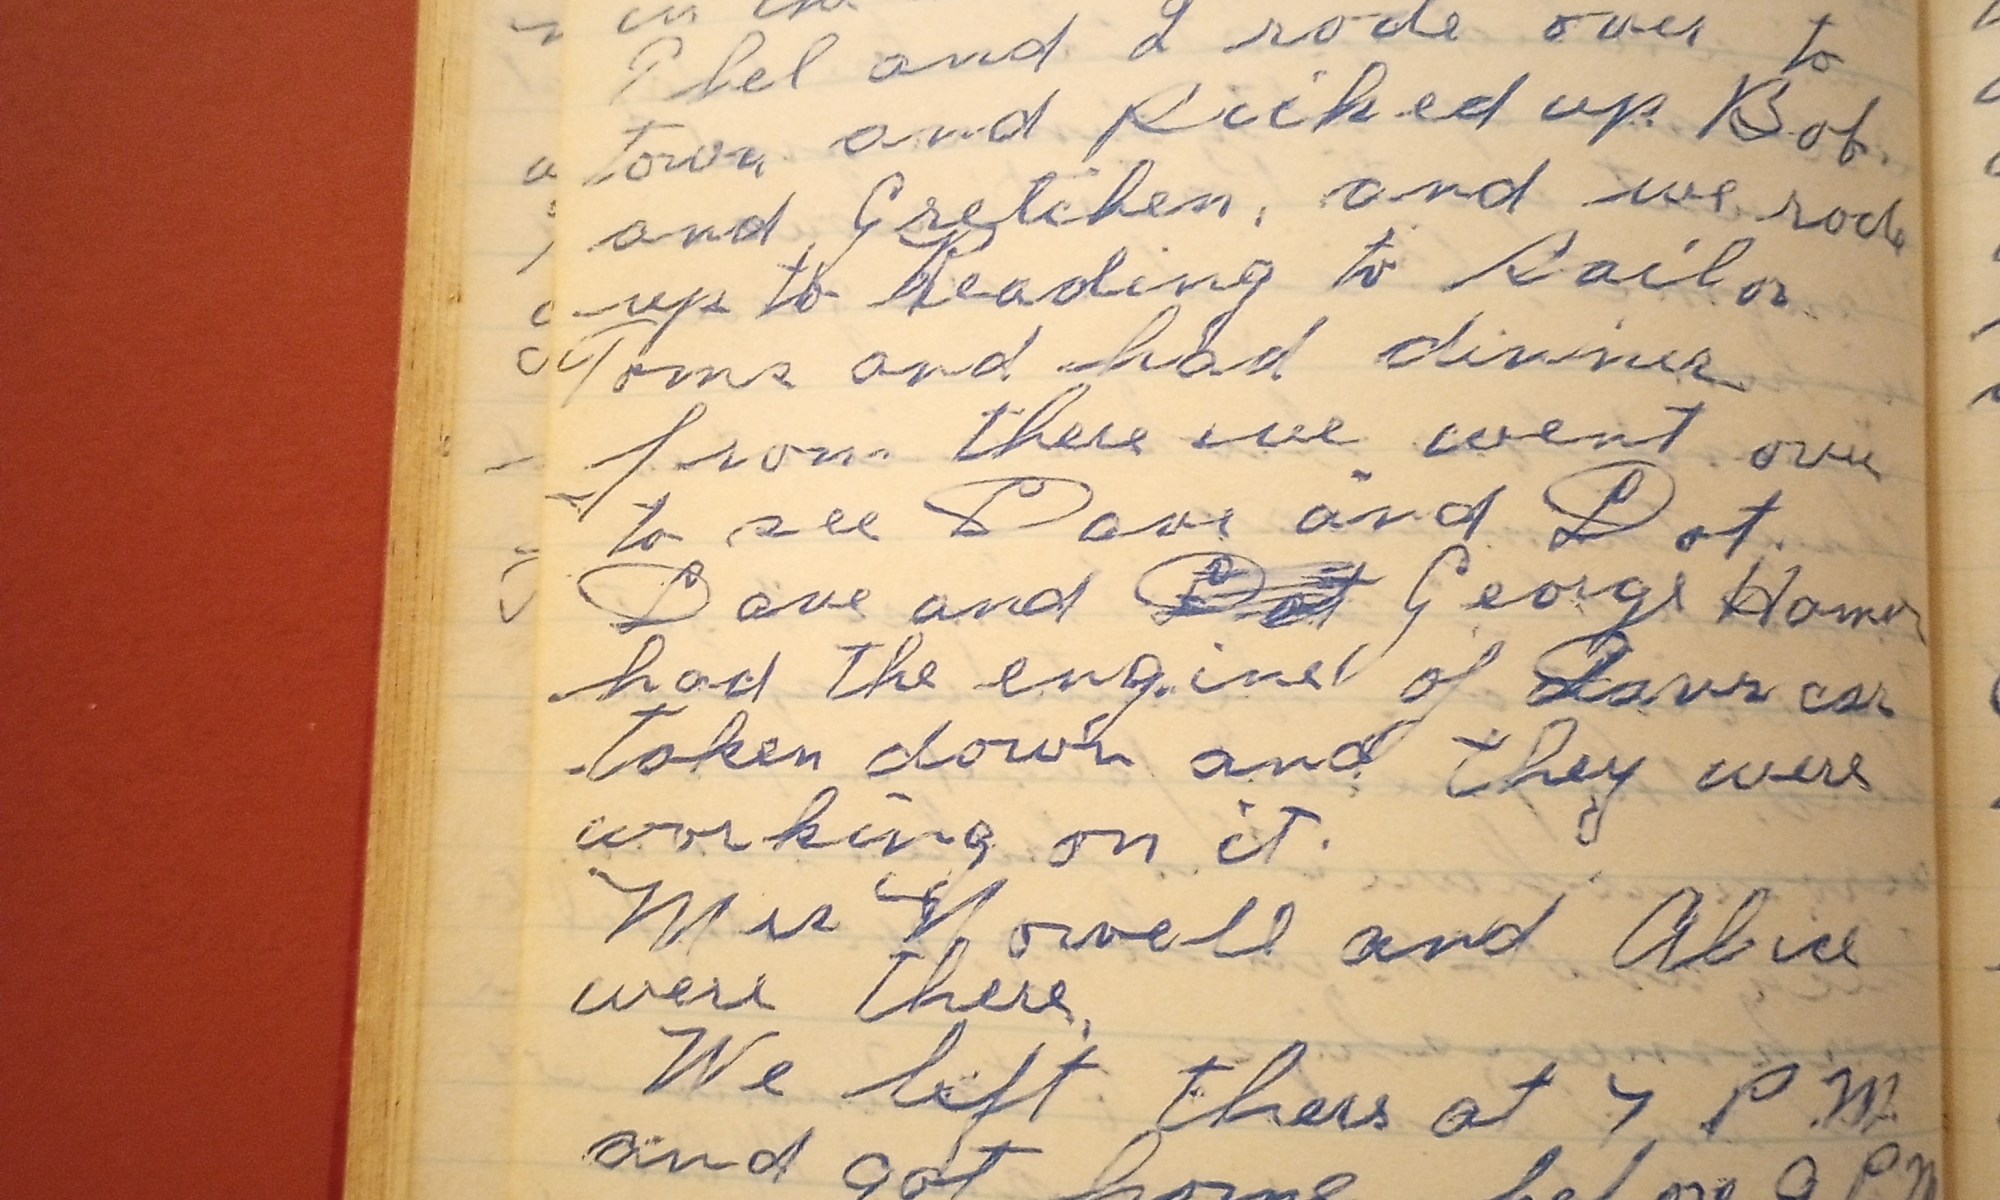 in the
Ethel and I rode over to
town and Picked up Bob.
and Gretchen, and we rode
up to Reading to Sailor
Toms and had dinner
from there we went over
to see Dave and Dot.
Dave and Dot George
had the engine of Daves car
taken down and they were
working on it.
Mrs Howell and Alice
were there.
We left there at 7 P.M.
and got home before 9 PM